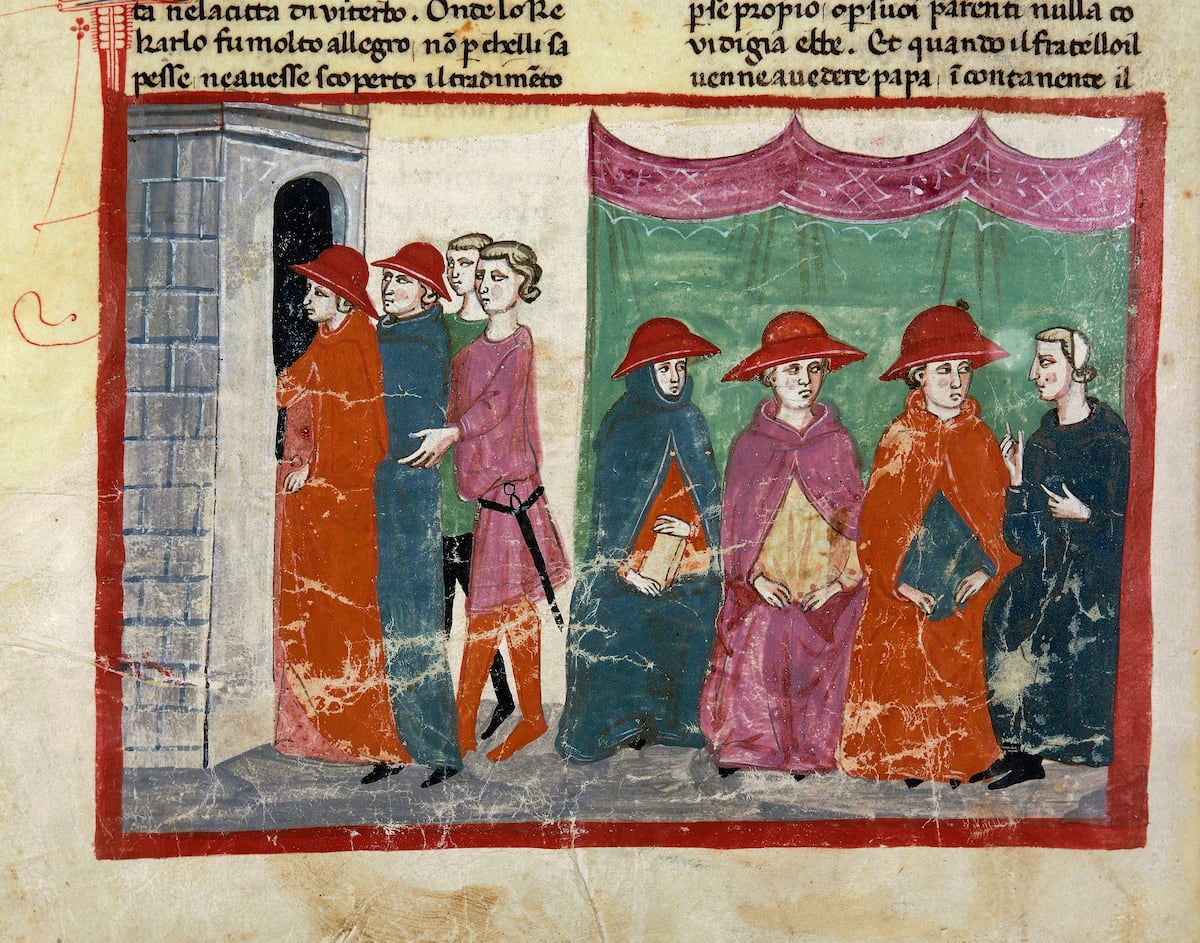 ta nela citta di viterbo. Onde lo Re
karlo fu molto allegro, nō p chelli sa
pesse, ne avesse scoperto il tradimēto
p se propio, o p suoi parenti nulla co
vidigia ebbe. Et quando il fratello il
venne a vedere papa, ī contanente il